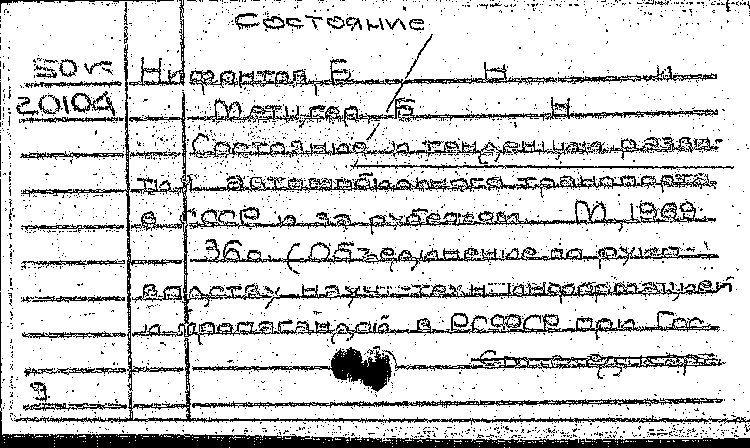 Состояние
Нифонтов, Б Н и
20104 Метцгер, Б Н
Состояние и тенденции разви-
тия автомобильного транспорта
в СССР и за рубежом. М, 1969.
36с. (Объединение по руко-
водству науч.-техн информацией
и пропагандой в РСФСР при Гос